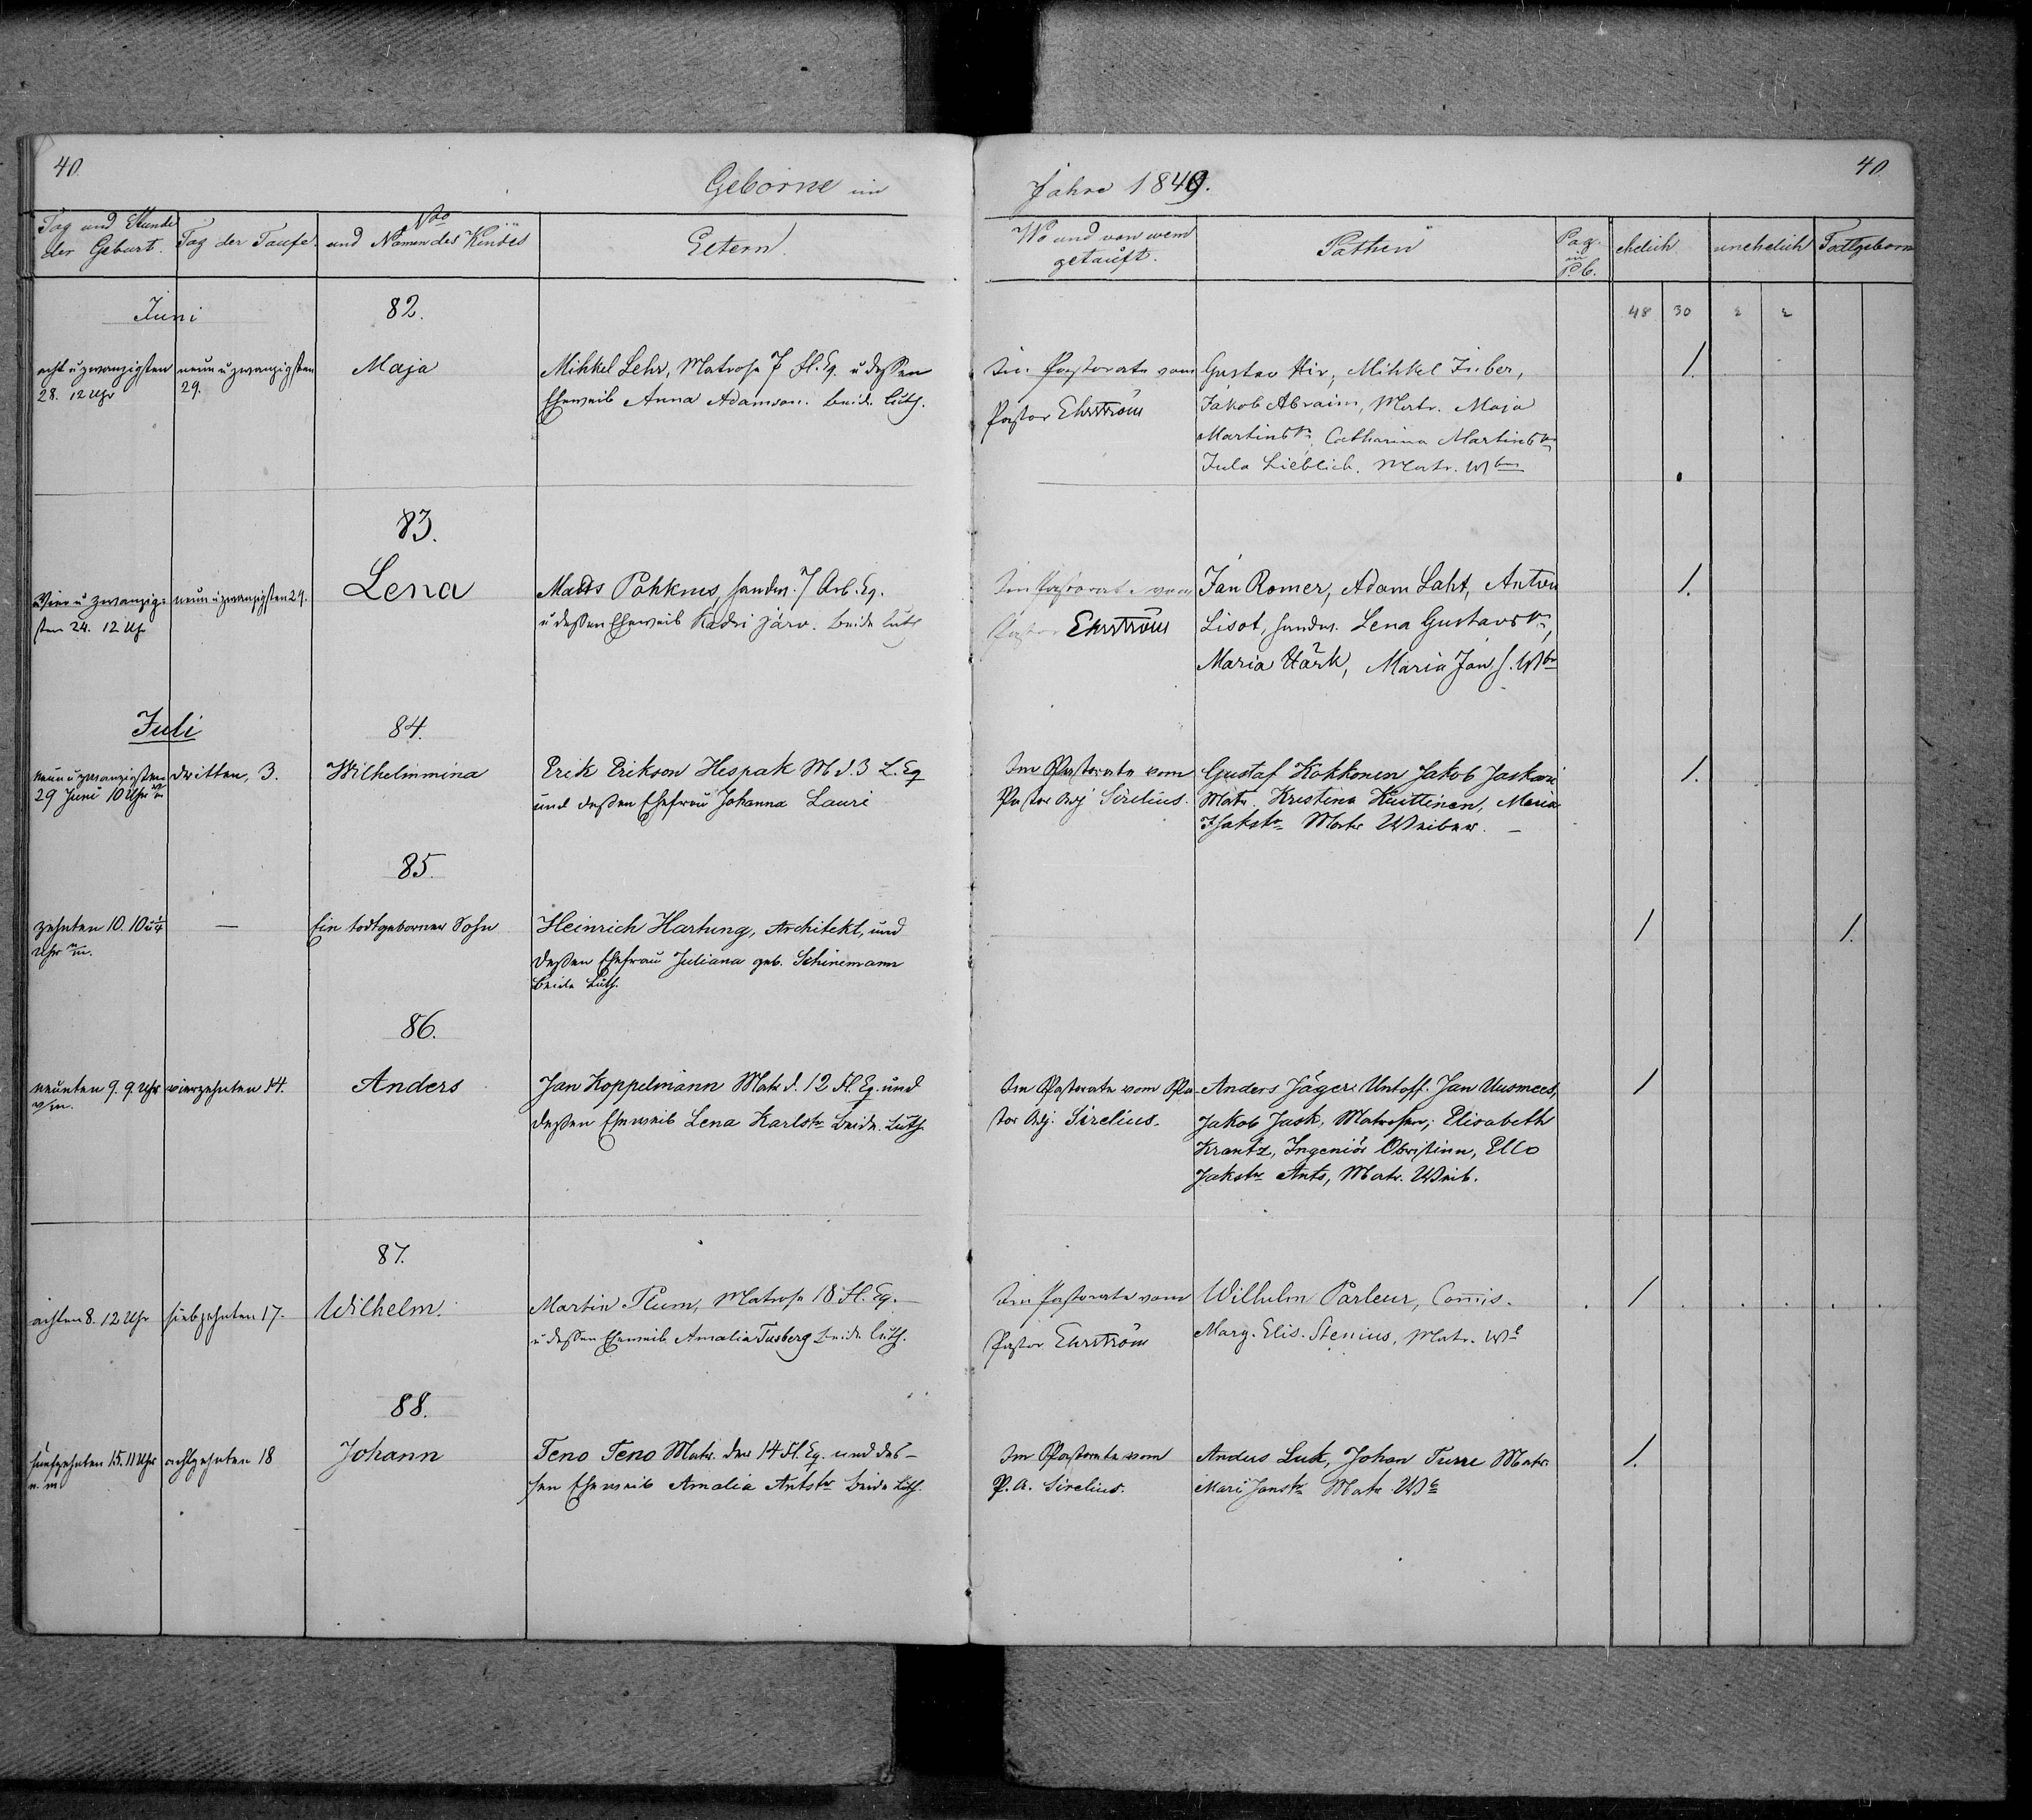 40.
Geborne im
Jahre 1849.
40
Tag und Stunde der Geburt.
Tag der Taufe.
No und Namen des Kindes
Eltern.
Wo und von wem getauft.
Pathen
Pag. im P.b.
ehelich
unehelich
Todtgeborn
48 30 2 2
Juni
82.
acht u zwanzigsten
28. 12 Uhr
neun u zwanzigsten
29.
Maja
Mihkel Lehr, Matrose 7 Fl. Eq. u deßen
Eheweib Anna Adamson. beide luth.
Im Pastorate vom
Pastor Ehrström
Gustav Hir, Mihkel
Jakob Abraim, Matr. Maja
Martinstr, Catharina Martinstr
Jula Lieblich. Matr. Wbr
1.
83.
Vier u zwanzig-
sten 24. 12 Uhr
neun u zwanzigsten 29.
Lena
Mats Pohkus, Handw. 7 Arb. Eq.
u deßen Eheweib Kadri Järv. beide luth
Im Pastorate vom
Pastor Ehrström
Jan Romer, Adam Laht, Anton
Lisot, Handw. Lena Gustavstr,
Maria Härk, Maria Jan H. Wbr
1.
Juli
84.
neun u zwanzigsten
29 Juni 10 Uhr
dritten, 3.
Wilhelmmina
Erik Erikson Hespak M d. 3 L. Eq
und deßen Ehefrau Johanna Lauri
Im Pastorate vom
Pastor Adj Sirelius.
Gustaf Kokkonen Jakob Jaskari
Matr. Kristina Kuittinen, Maria
Matr Weiber. –
1.
85.
zehnten 10. 10 u 1/4
Uhr
—
Ein todtgeborner Sohn
Heinrich Hartung, Architekt, und
deßen Ehefrau Juliana geb. Schinemann
beide Luth.
1
1.
86.
neunten 9. 9. Uhr
v/m.
vierzehnten 14.
Anders
Jan Koppelmann Matr d. 12 Fl. Eq. und
deßen Eheweib Lena Karlstr beide Luth.
Im Pastorate vom Pa-
stor Adj. Sirelius.
Anders Jäger Untoff. Jan Uusmees,
Jakob Jask, Matrosen; Elisabeth
Krantz, Ingeniör Obristinn, Ello
Jakstr Ants, Matr. Weib.
1
87.
achten 8. 12 Uhr
siebzehnten 17.
Wilhelm.
Martin Plum, Matrose 18 Fl. Eq.
u deßen Eheweib Amalia Tusberg beide luth.
Im Pastorate vom
Pastor Ehrström
Wilhelm Parleur, Comis.
Marg. Elis. Stenius, Matr. We
1
88.
fünfzehnten 15. 11 Uhr
n. m
achtzehnten 18
Johann
Teno Teno Matr. der 14 Fl. Eq. und des-
sen Eheweib Amalia Antstr beide Luth.
Im Pastorate vom
P. A. Sirelius.
Andus Luk, Johan Turre Matr.
Mari Janstr Matr We
1.